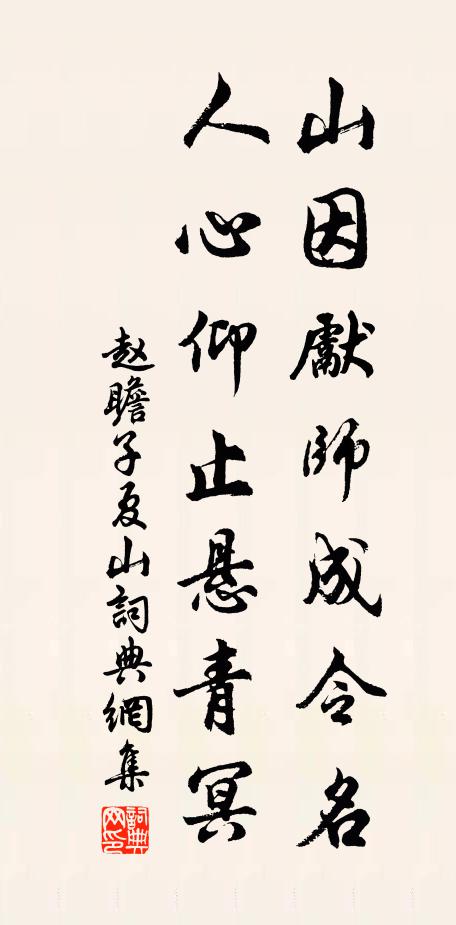 山因獻師成令名
人心仰止悬青冥
赵瞻子夏山詞典網集
詞典网印